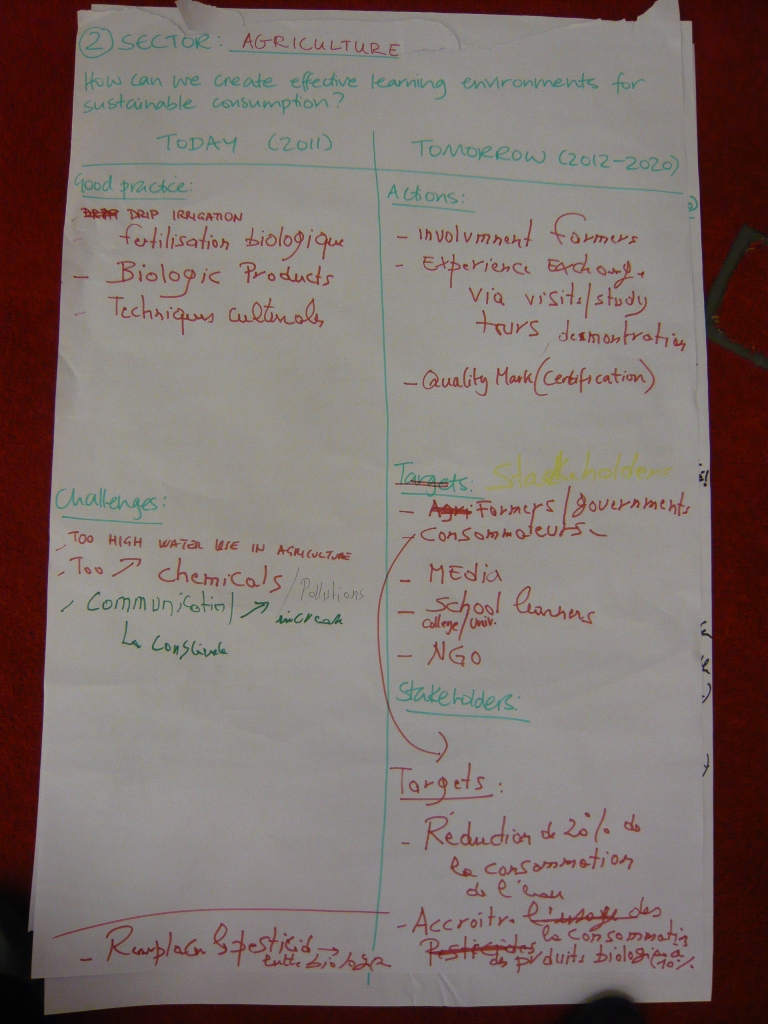 2 SECTOR: AGRICULTURE
How can we create effective learning environments for
sustainable consumption?
TODAY (2011)
Good practice:
DRIP IRRIGATION
fertilisation biologique
- Biologic Products
- Techniques culturales
Challenges:
- TOO HIGH WATER USE IN AGRICULTURE
- Too ↗ chemicals / Pollutions
- Communication / ↗ increase
la
- Remplacer les pesticid →
lutte biologiq
TOMORROW (2012-2020)
Actions:
- involvmnent formers
- Experience Exchange
via visits/study
tours desmontration
- Quality Mark (Certification)
Targets: Stakeholders
- Agri Formers / governments
- Consommateurs
- MEdia
- School learners
college/univ.
- NGO
Stakeholders:
Targets:
- Réduction de 20% de
la consommation
de l'eau
- Accroitre l'usage des
la consommation
Pesticides des produits biologique à
(10%